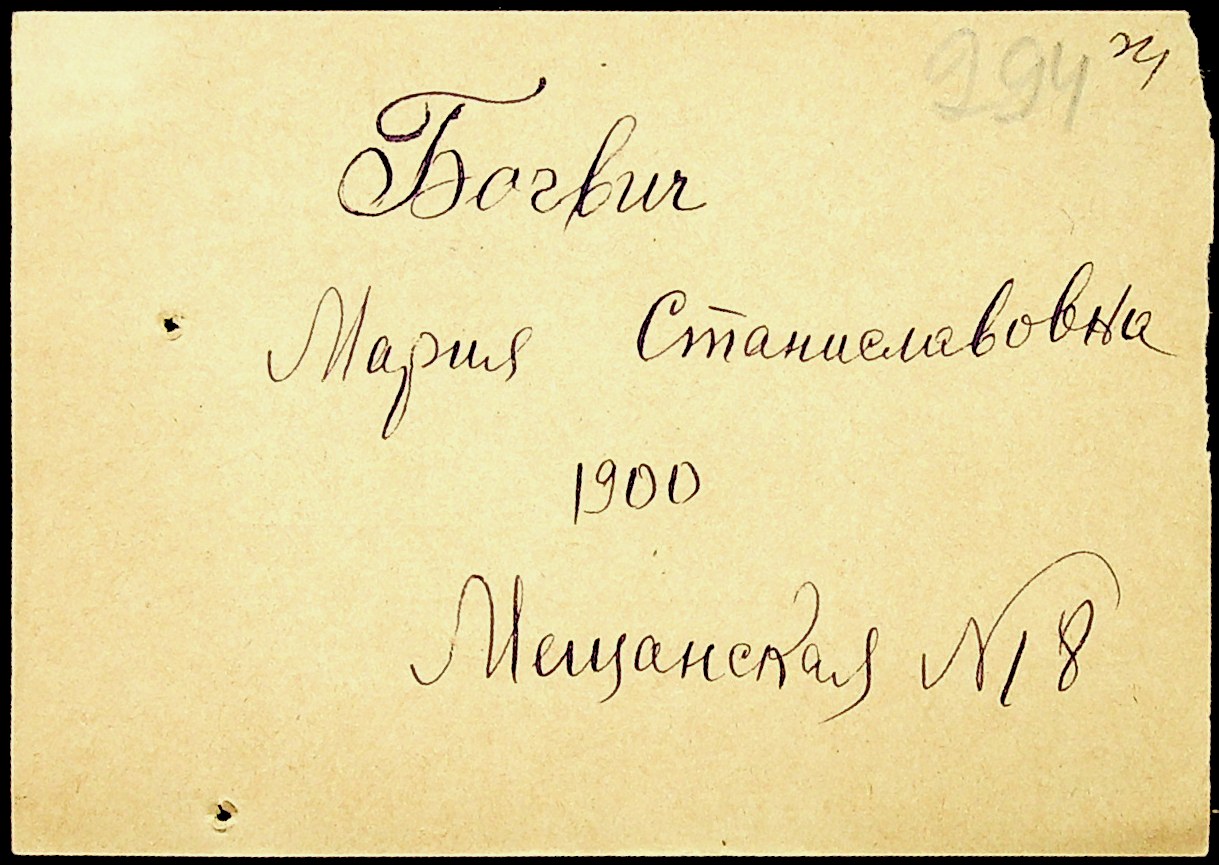 294
Богвич
Мария Станиславовна
1900
Мещанская N 18